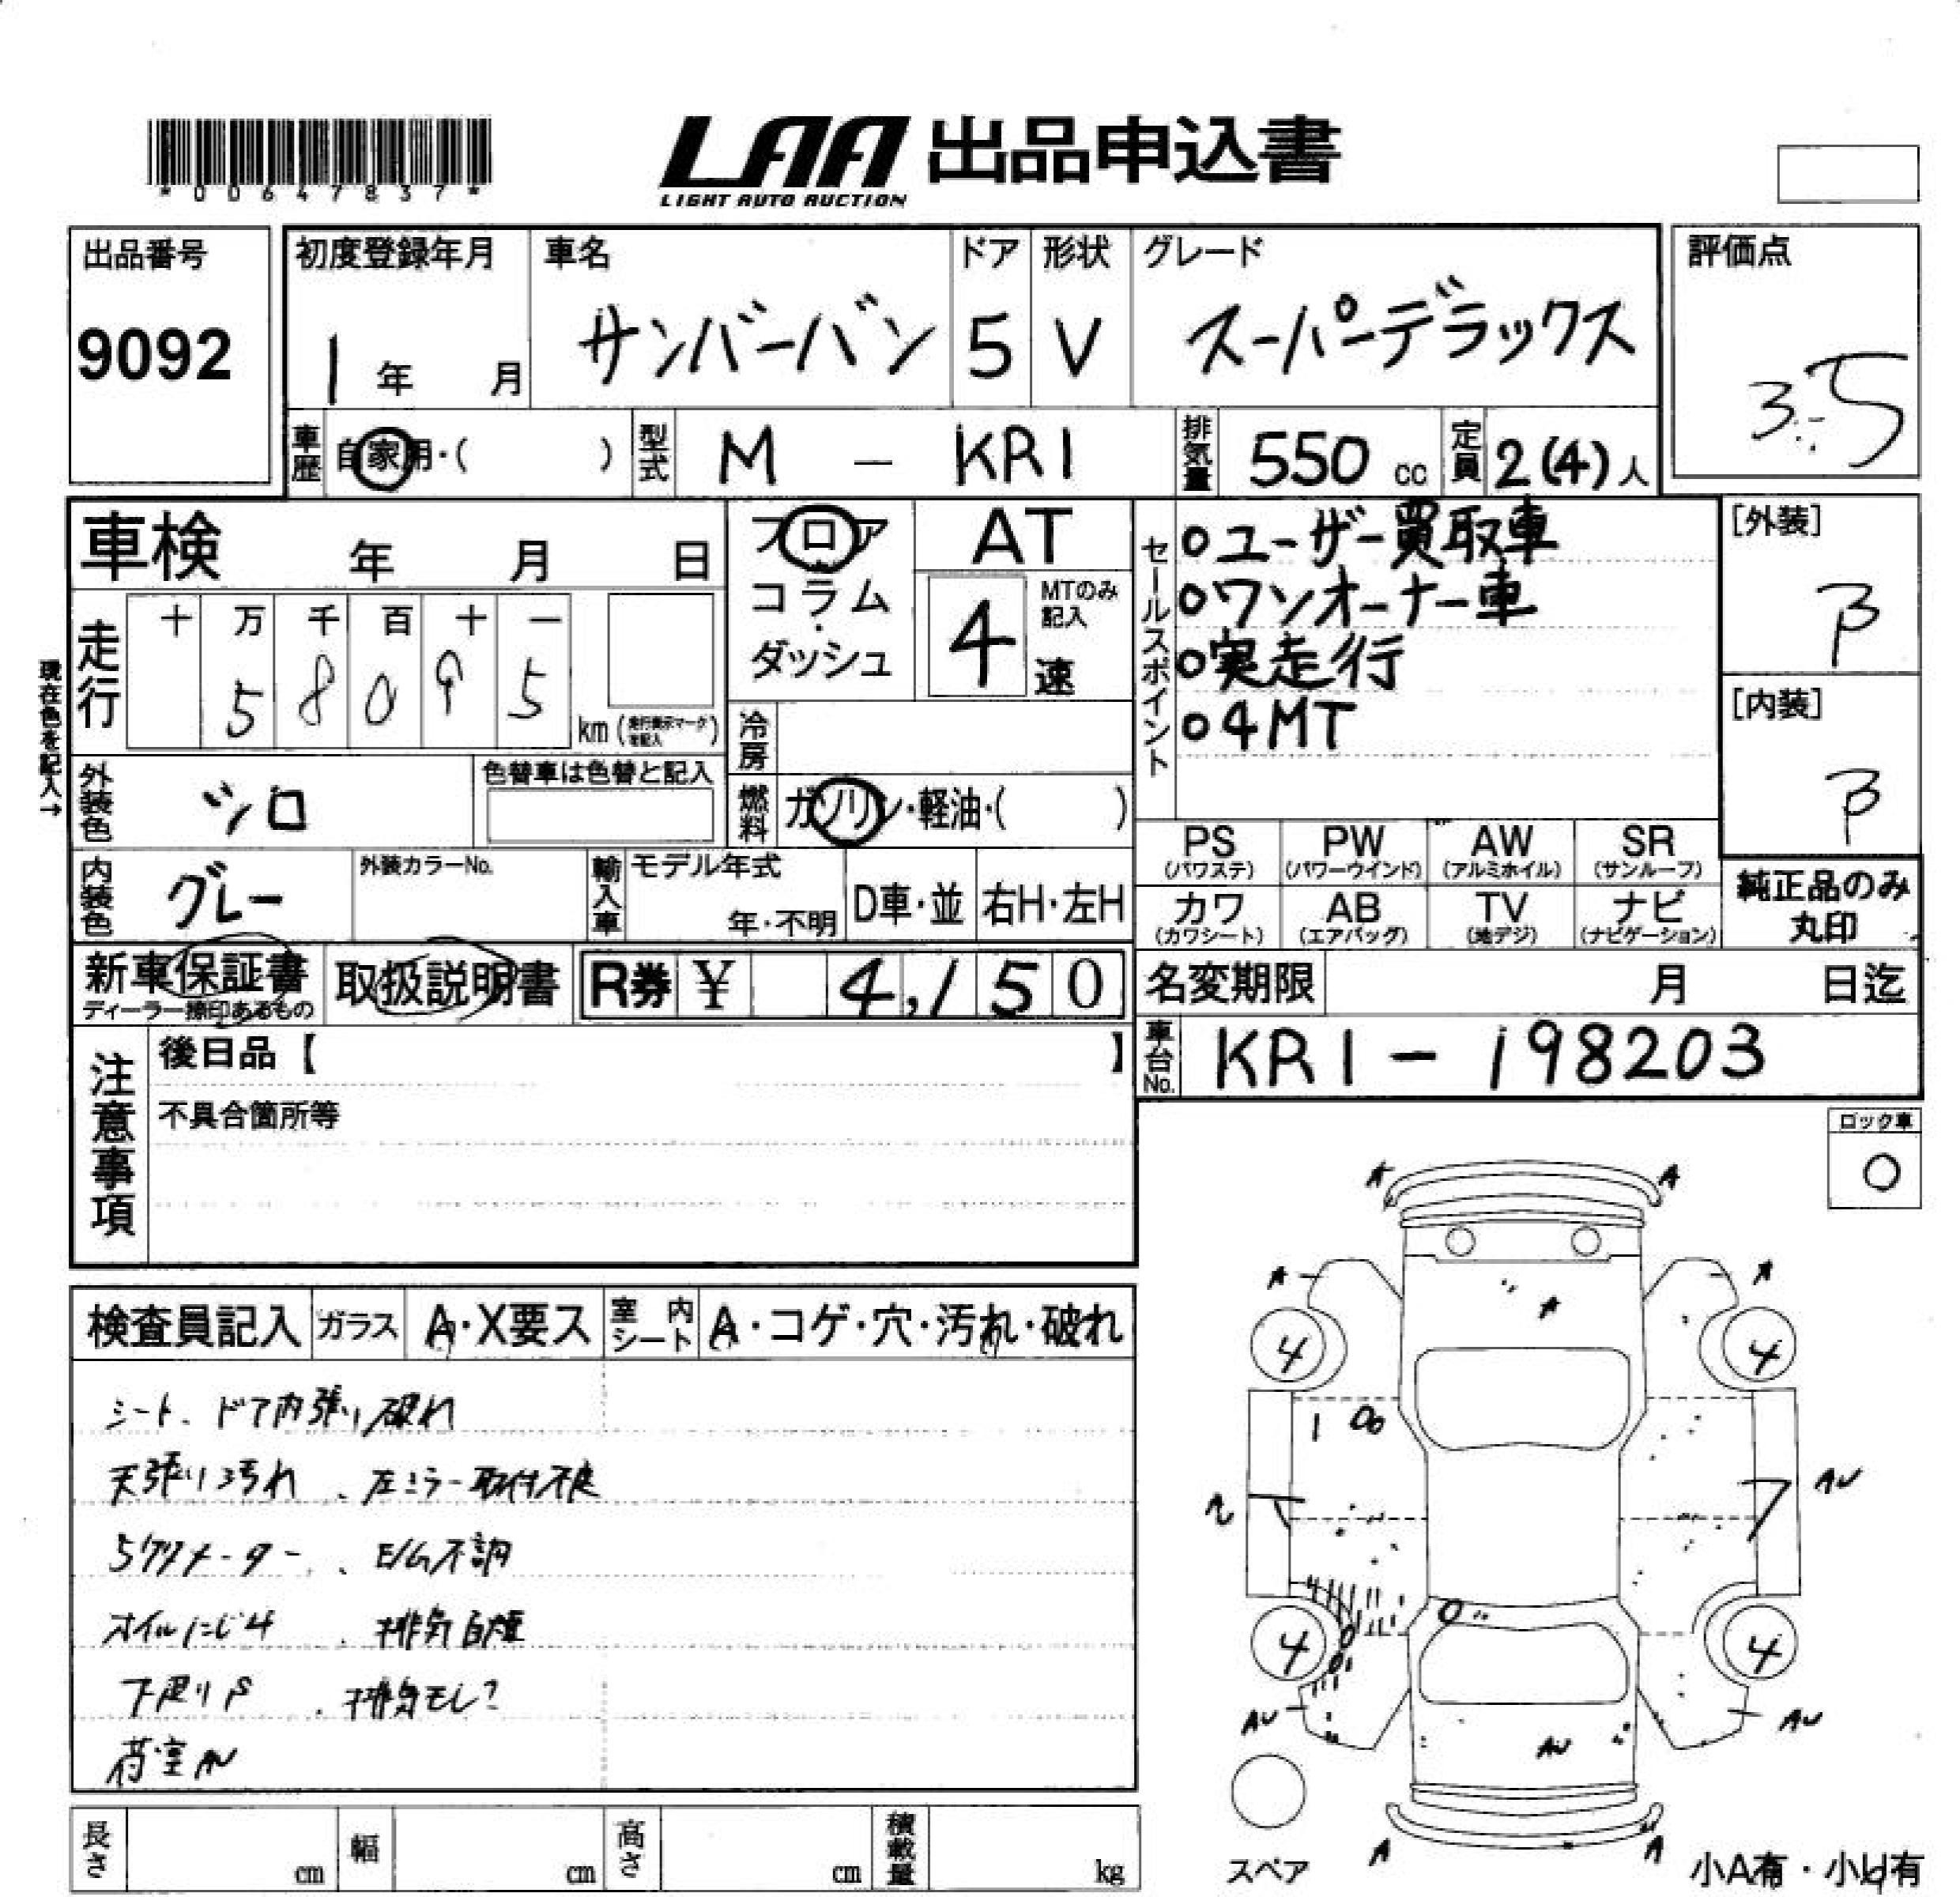 *00647837*
LAA 出品申込書
LIGHT AUTO AUCTION
出品番号
9092
初度登録年月
1年 月
車名
サンバーバン
ドア
5
形状
V
グレード
スーパーデラックス
評価点
3.5
車歴
自家用・( )
型式
M - KR1
排気量
550 cc
定員
2(4)人
車検 年 月 日
フロア
コラム
・
ダッシュ
AT
4
MTのみ
記入
速
セールスポイント
○ユーザー買取車
○ワンオーナー車
○実走行
○4MT
[外装]
B
[内装]
B
現在色を記入→
走行
十 万 千 百 十 一
5 8 0 9 5
km
冷房
外装色
シロ
色替車は色替と記入
燃料
ガソリン・軽油・( )
PS
(パワステ)
PW
(パワーウインド)
AW
(アルミホイル)
SR
(サンルーフ)
カワ
(カワシート)
AB
(エアバッグ)
TV
(地デジ)
ナビ
(ナビゲーション)
純正品のみ
丸印
内装色
グレー
外装カラーNo.
輸入車
モデル年式
年・不明
D車・並
右H・左H
新車保証書
ディーラー捺印あるもの
取扱説明書
R券 ¥ 4,150
名変期限 月 日迄
車台No.
KR1-198203
注意事項
後日品【 】
不具合箇所等
ロック車
○
検査員記入
ガラス
A・X要ス
室内シート
A・コゲ・穴・汚れ・破れ
シート、ドア内張り破れ
天張り汚れ、左ミラー取付不良
5ケタメーター、E/G不調
オイルにじみ、排気白煙
下廻りS、排気モレ?
荷室AU
A
A
A
A
A
4
4
AU
4
4
AU
AU
AU
A
A
スペア
小A有・小U有
長さ cm
幅 cm
高さ cm
積載量 kg